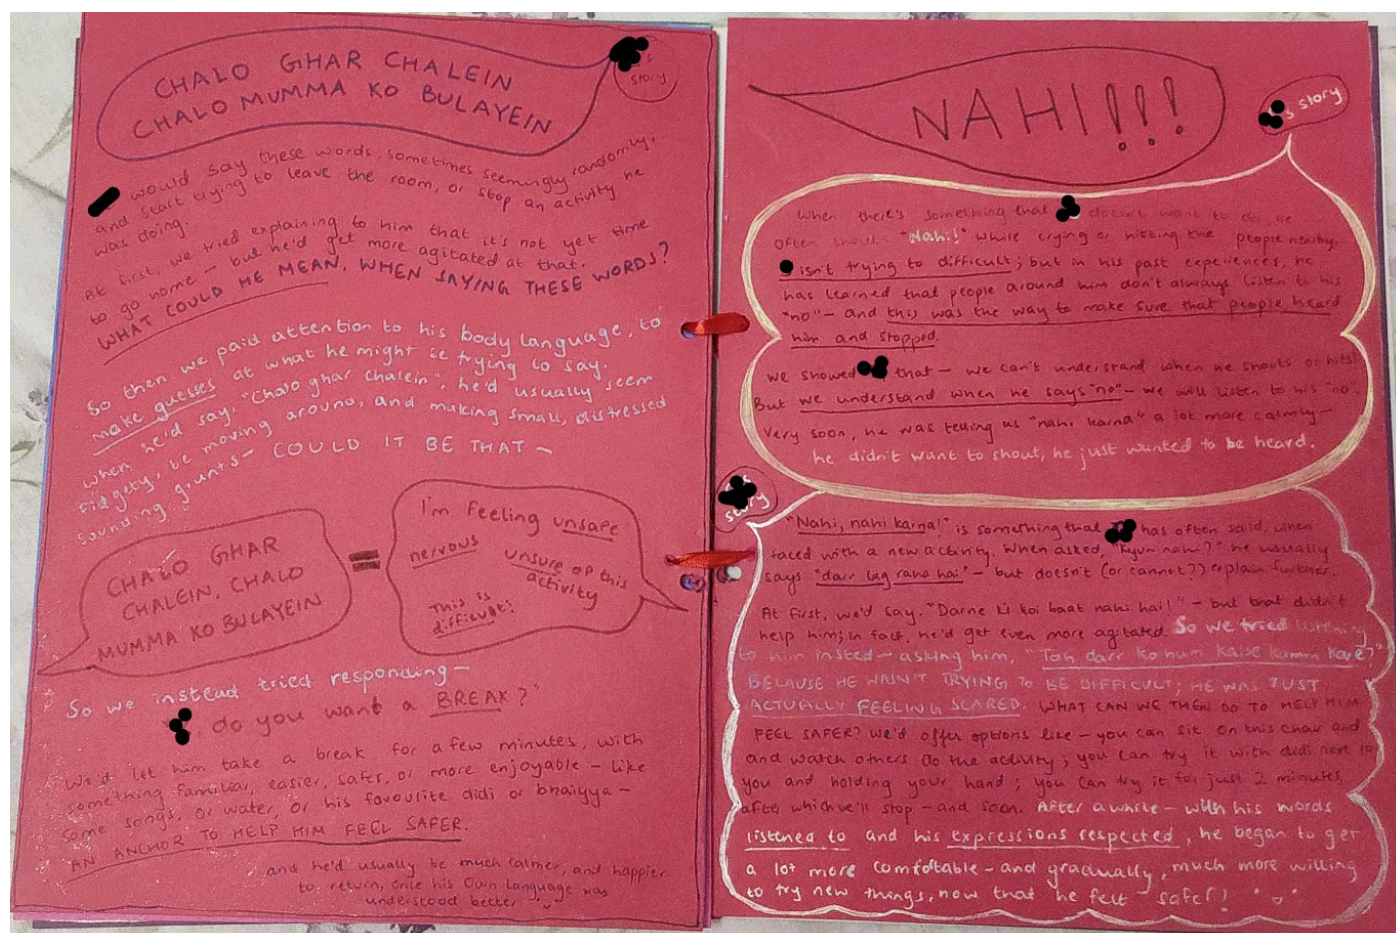 CHALO GHAR CHALEIN
CHALO MUMMA KO BULAYEIN
's
story
would say these words, sometimes seemingly randomly,
and start trying to leave the room, or stop an activity he
was doing.
At first, we tried explaining to him that it's not yet time
to go home - but he'd get more agitated at that.
WHAT COULD HE MEAN, WHEN SAYING THESE WORDS?
So then we paid attention to his body language, to
make guesses at what he might be trying to say.
When he'd say, "Chalo ghar chalein", he'd usually seem
fidgety, be moving around, and making small, distressed
sounding grunts - COULD IT BE THAT -
CHALO GHAR
CHALEIN, CHALO
MUMMA KO BULAYEIN
=
I'm feeling unsafe
nervous
unsure of this
activity
This is
difficult!
So we instead tried responding -
, do you want a BREAK?"
We'd let him take a break for a few minutes, with
something familiar, easier, safer, or more enjoyable - like
some songs, or water, or his favourite didi or bhaiyya -
AN ANCHOR TO HELP HIM FEEL SAFER.
and he'd usually be much calmer, and happier
to return, once his own language was
understood better
NAHI!!!
's story
When there's something that doesn't want to do, he
often shouts "Nahi!" while crying or hitting the people nearby.
isn't trying to difficult; but in his past experiences, he
has learned that people around him don't always listen to his
"no" - and this was the way to make sure that people heard
him and stopped.
We showed that - we can't understand when he shouts or hits!
But we understand when he says "no" - we will listen to his "no".
Very soon, he was telling us "nahi karna" a lot more calmly -
he didn't want to shout, he just wanted to be heard.
's
story
"Nahi, nahi karna!" is something that has often said, when
faced with a new activity. When asked, "kyun nahi?" he usually
says "darr lag raha hai" - but doesn't (or cannot?) explain further.
At first, we'd say, "Darne ki koi baat nahi hai!" - but that didn't
help him; in fact, he'd get even more agitated. So we tried listening
to him insted - asking him, "Toh darr ko hum kaise kamm kare?"
BECAUSE HE WASN'T TRYING TO BE DIFFICULT; HE WAS JUST
ACTUALLY FEELING SCARED. WHAT CAN WE THEN DO TO HELP HIM
FEEL SAFER? We'd offer options like - you can sit on this chair and
and watch others do the activity; you can try it with didi next to
you and holding your hand; you can try it for just 2 minutes,
after which we'll stop - and soon. After a while - with his words
listened to and his expressions respected, he began to get
a lot more comfotable - and gradually, much more willing
to try new things, now that he felt safe!!